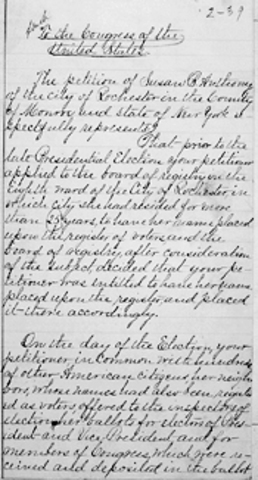 2-39
To the Congress of the
United States.
The petition of Susan B. Anthony
of the city of Rochester in the County
of Monroe and state of New York re-
spectfully represents:
That prior to the
late Presidential Election your petitioner
applied to the board of registry in the
Eighth ward of the City of Rochester in
which city she had resided for more
than 25 years, to have her name placed
upon the register of voters and the
board of registry, after consideration
of the subject, decided that your pe-
titioner was entitled to have her name
placed upon the register and placed
it there accordingly.
On the day of the Election, your
petitioner, in common with hundreds
of other American citizens, her neigh-
bors, whose names had also been registe
ed as voters, offered to the inspectors of
election, her ballots for electors of Pres-
ident and Vice President, and for
members of Congress, which were re-
ceived and deposited in the ballot